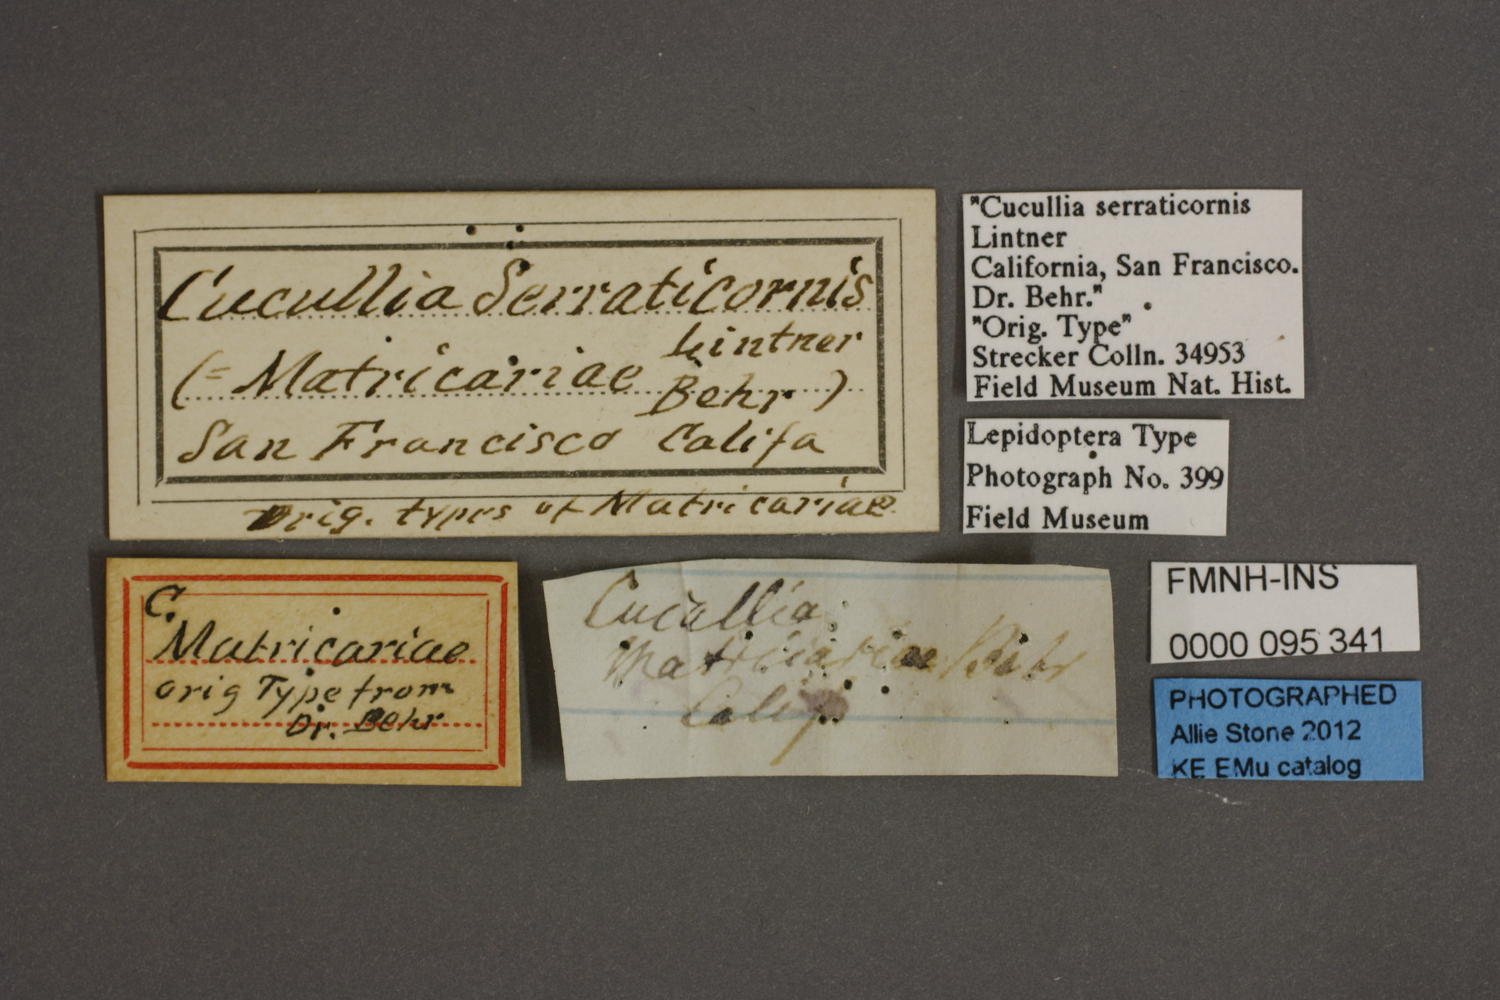 Cucullia Serraticornis
Lintner
(= Matricariae Behr)
San Francisco Califa
Orig. types of Matricariae
"Cucullia serraticornis
Lintner
California, San Francisco.
Dr. Behr."
"Orig. Type"
Strecker Colln. 34953
Field Museum Nat. Hist.
Lepidoptera Type
Photograph No. 399
Field Museum
C.
Matricariae
orig Type from
Dr. Behr
Cucullia
Matricariae Behr
Calif
FMNH-INS
0000 095 341
PHOTOGRAPHED
Allie Stone 2012
KE EMu catalog